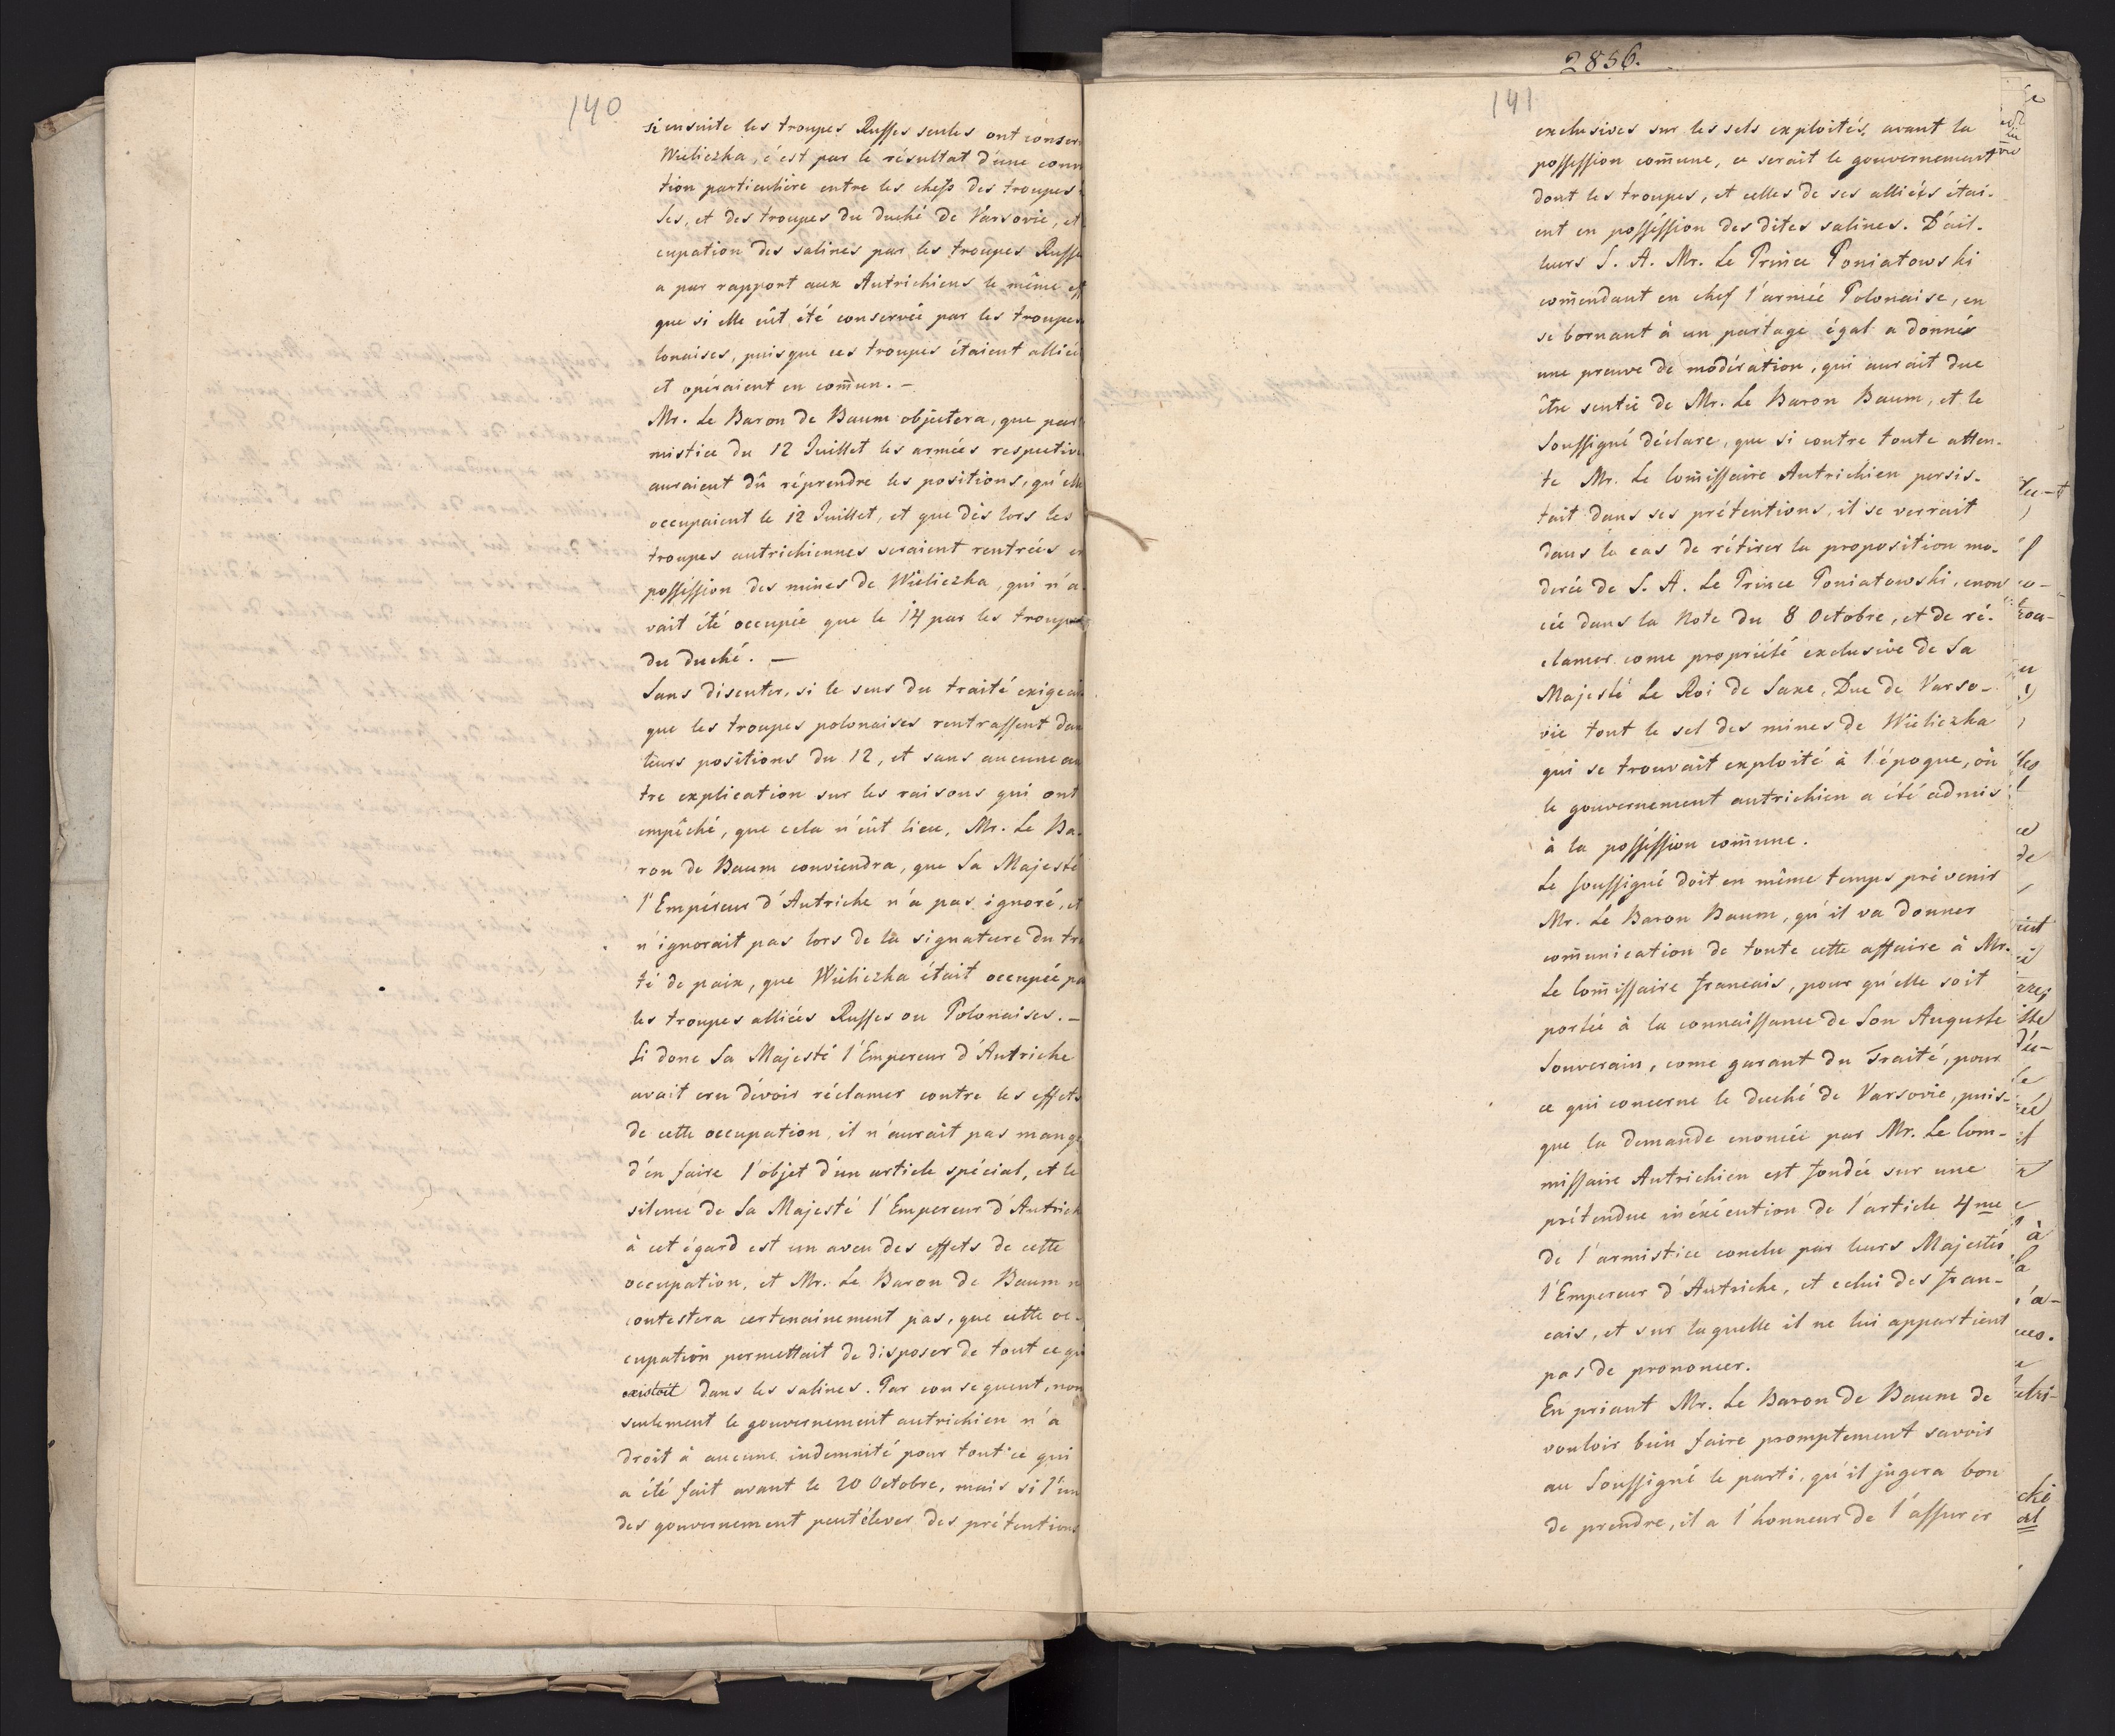 140
si ensuite les troupes Russes seules ont conser
Wieliczka, c'est par le résultat d'une conv
tion particulière entre les chefs des troupes
ses, et des troupes du duché de Varsovie, et
cupation des salines par les troupes Russe
a par rapport aux Autrichiens le même eff
que si elle eût été conservée par les troupes
lonaises, puisque ces troupes étaient alliée
et opéraient en com̄un. —
Mr. Le Baron de Baum objectera, que par
mistice du 12 Juillet les armées respective
auraient dû réprendre les positions, qu'elle
occupaient le 12 Juillet, et que dès lors les
troupes autrichiennes seraient rentrées en
possession des mines de Wieliczka, qui n'a
vait été occupée que le 14 par les troupes
du duché. —
Sans discuter, si le sens du traité exigeai
que les troupes polonaises rentrassent dan
leurs positions du 12, et sans aucune au
tre explication sur les raisons qui ont
empêché, que cela n'eût lieu, Mr. Le Ba-
ron de Baum conviendra, que Sa Majesté
l'Empéreur d'Autriche n'a pas ignoré, et
n'ignorait pas lors de la signature du tra
té de paix, que Wieliczka était occupée pa
les troupes alliées Russes ou Polonaises. —
Si donc Sa Majesté l'Empereur d'Autriche
avait cru dévoir réclamer contre les effets
de cette occupation, il n'aurait pas manq
d'en faire l'objet d'un article spécial, et le
silence de Sa Majesté l'Empereur d'Autrich
à cet égard est un aveu des effets de cette
occupation, et Mr. Le Baron de Baum n
contestera certenainement pas, que cette oc-
cupation permettait de disposer de tout ce qui
existoit dans les salines. Par consequent, non
seulement le gouvernement autrichien n'a
droit à aucune indemnité pour tout ce qui
a été fait avant le 20 Octobre, mais si l'un
des gouvernement peut élever des prétentions
2856.
141
exclusives sur les sels exploités, avant la
possession com̄une, ce serait le gouvernement
dont les troupes, et celles de ses alliées étai-
ent en possession des dites salines. D'ail-
leurs S. A. Mr. Le Prince Poniatowski
com̄endant en chef l'armée Polonaise, en
se bornant à un partage égal a donnés
une preuve de modération, qui aurait due
être sentie de Mr. Le Baron Baum, et le
Soussigné déclare, que si contre toute atten-
te Mr. Le Com̄issaire Autrichien persis-
tait dans ses prétentions, il se verrait
dans le cas de rétirer la proposition mo-
derée de S. A. Le Prince Poniatowski, enon
cée dans la Note du 8 Octobre, et de ré-
clamer come propriété exclusive de Sa
Majesté Le Roi de Saxe, Duc de Varso-
vie tout le sel des mines de Wieliczka
qui se trouvait exploité à l'époque, où
le gouvernement autrichien a été admis
à la possession com̄une.
Le soussigné doit en même temps prévenir
Mr. Le Baron Baum, qu'il va donner
com̄unication de toute cette affaire à Mr.
Le Com̄issaire francais, pour qu'elle soit
portée à la connaissance de Son Auguste
Souverain, come garant du Traité, pour
ce qui concerne le duché de Varsovie, puis-
que la demande enoncée par Mr. Le Com-
missaire Autrichien est fondée sur une
prétendue inéxécution de l'article 4me
de l'armistice conclu par leurs Majestés
l'Empereur d'Autriche, et celui des fran-
cais, et sur laquelle il ne lui appartient
pas de prononcer.
En priant Mr. Le Baron de Baum de
vouloir bien faire promptement savoir
au Soussigné le parti, qu'il jugera bon
de prendre, il a l'honneur de l'assurer